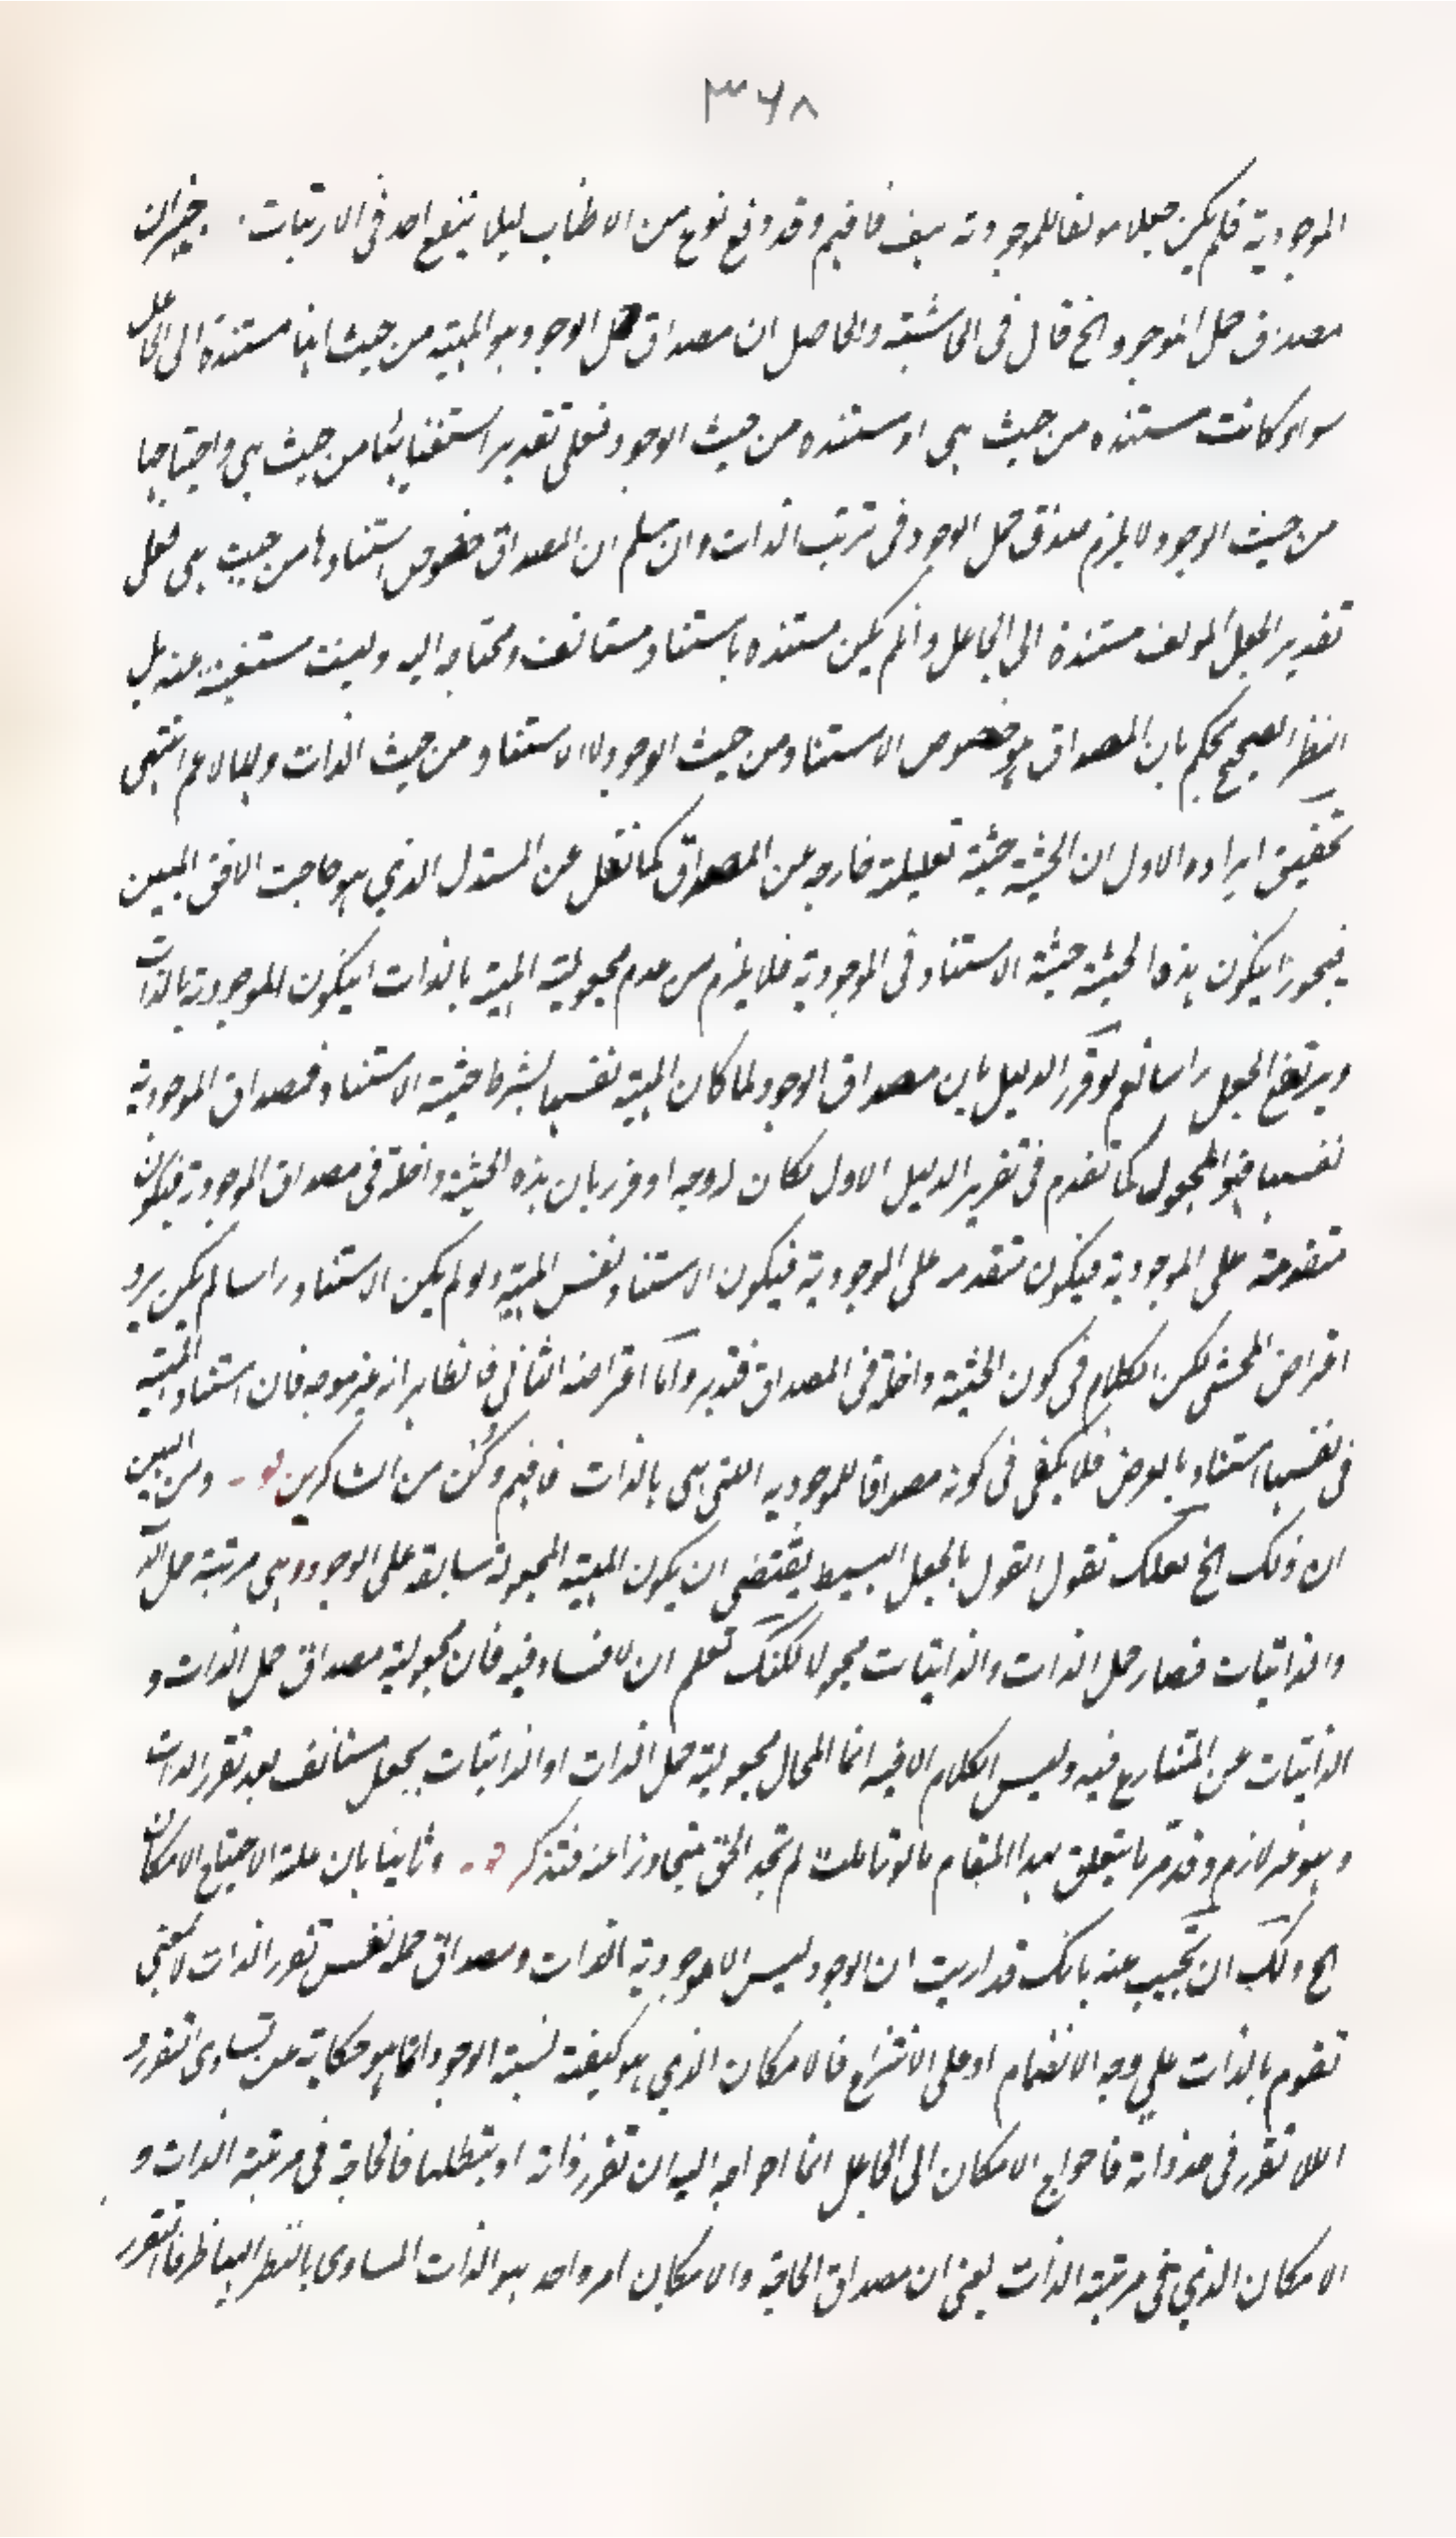 ٣٦٨
الموجودية فلم يكن جعلا مؤلفا للموجودية فافهم وقد وقع نوع من الاطناب ليلا يقع احد فى الارتياب
مصدق حمل الموجود الخ قال فى الحاشية والحاصل ان مصداق حمل الوجود هو المهية من حيث انها مستندة الى الجاعل
سواء كانت مستنده من حيث هى او مستنده من حيث الوجود فعلى تقدير استغنائها من حيث هى واحتياجها
من حيث الوجود لا يلزم صدق حمل الوجود فى مرتبة الذات وان سلم ان المصداق خصوص استنادها من حيث هى فعلى
تقدير الجعل المولف مستندة الى الجاعل وان لم يكن مستنده باستناد مستانف ومحتاجه اليه وليست مستغنية عنه بل
النظر الصحيح يحكم بان المصداق هو خصوص الاستناد من حيث الوجود لا الاستناد من حيث الذات ولا الاعم انتهى
تحقيق ايراده الاول ان الحيثية حيثية تعليلية خارجه عن المصداق كما نقل عن المستدل الذي هو صاحب الافق المبين
فيجوز ان يكون هذه الحيثية حيثية الاستناد فى الموجودية فلا يلزم من عدم مجعولية المهية بالذات ان يكون الموجودية بالذات
ويرتفع الجعل راسا نعم لو قرر الدليل بان مصداق الوجود لما كان المهية نفسها بشرط حيثية الاستناد فمصداق الموجودية
نفسها فهو المجعول كما تقدم فى تقرير الدليل الاول لكان له وجه او قرر بان هذه الحيثية داخلة فى مصداق الموجودية فيكون
متقدمة على الموجودية فيكون متقدمه على الموجودية فيكون الاستناد لنفس المهية ولو لم يكن الاستناد راسا لم يكن يرد
اعتراض المحشى لكن الكلام فى كون الحيثية داخلة فى المصداق فتدبر واما اعتراضه الثانى فالظاهر انه غير موجه فان استناد المهية
فى نفسها استناد بالعرض فلا يكفى فى كونه مصداقا للموجوديه التى هى بالذات فافهم وكن من الشاكرين قوله ومن البين
ان ذلك الخ لعلك تقول القول بالجعل البسيط يقتضى ان يكون المهية المجعولة سابقه على الوجود وهى مرتبة حمل الذات
والذاتيات فصار حمل الذات والذاتيات مجعولا لكنك تعلم ان لا فساد فيه فان مجعولية مصداق حمل الذات و
الذاتيات عن المتنازع فيه وليس الكلام الا فيه انما المحال مجعولية حمل الذات او الذاتيات بجعل مستانف بعد تقرر الذات
وهو غير لازم وقد مر ما يتعلق بهذا المقام ما لو تاملت لم تجد الحق متجاوزا عنه فتذكر قوله وثانيا بان علة الاحتياج الامكان
الخ ولك ان تجيب عنه بانك قد دريت ان الوجود ليس الا موجودية الذات ومصداق حمله نفس تقرر الذات لا معنى
تقوم بالذات على وجه الانضمام او على الانتزاع فالامكان الذي هو كيفية نسبة الوجود انما هو حكاية عن تساوى التقرر و
اللا تقرر فى حد ذاته فاحواج الامكان الى الجاعل انما احواجه اليه ان تقرر ذاته او يبطلها فالحاجة فى مرتبة الذات و
الامكان الذي فى مرتبة الذات يعنى ان مصداق الحاجة والامكان امر واحد هو الذات المساوى بالنظر اليها طرفا التقرر